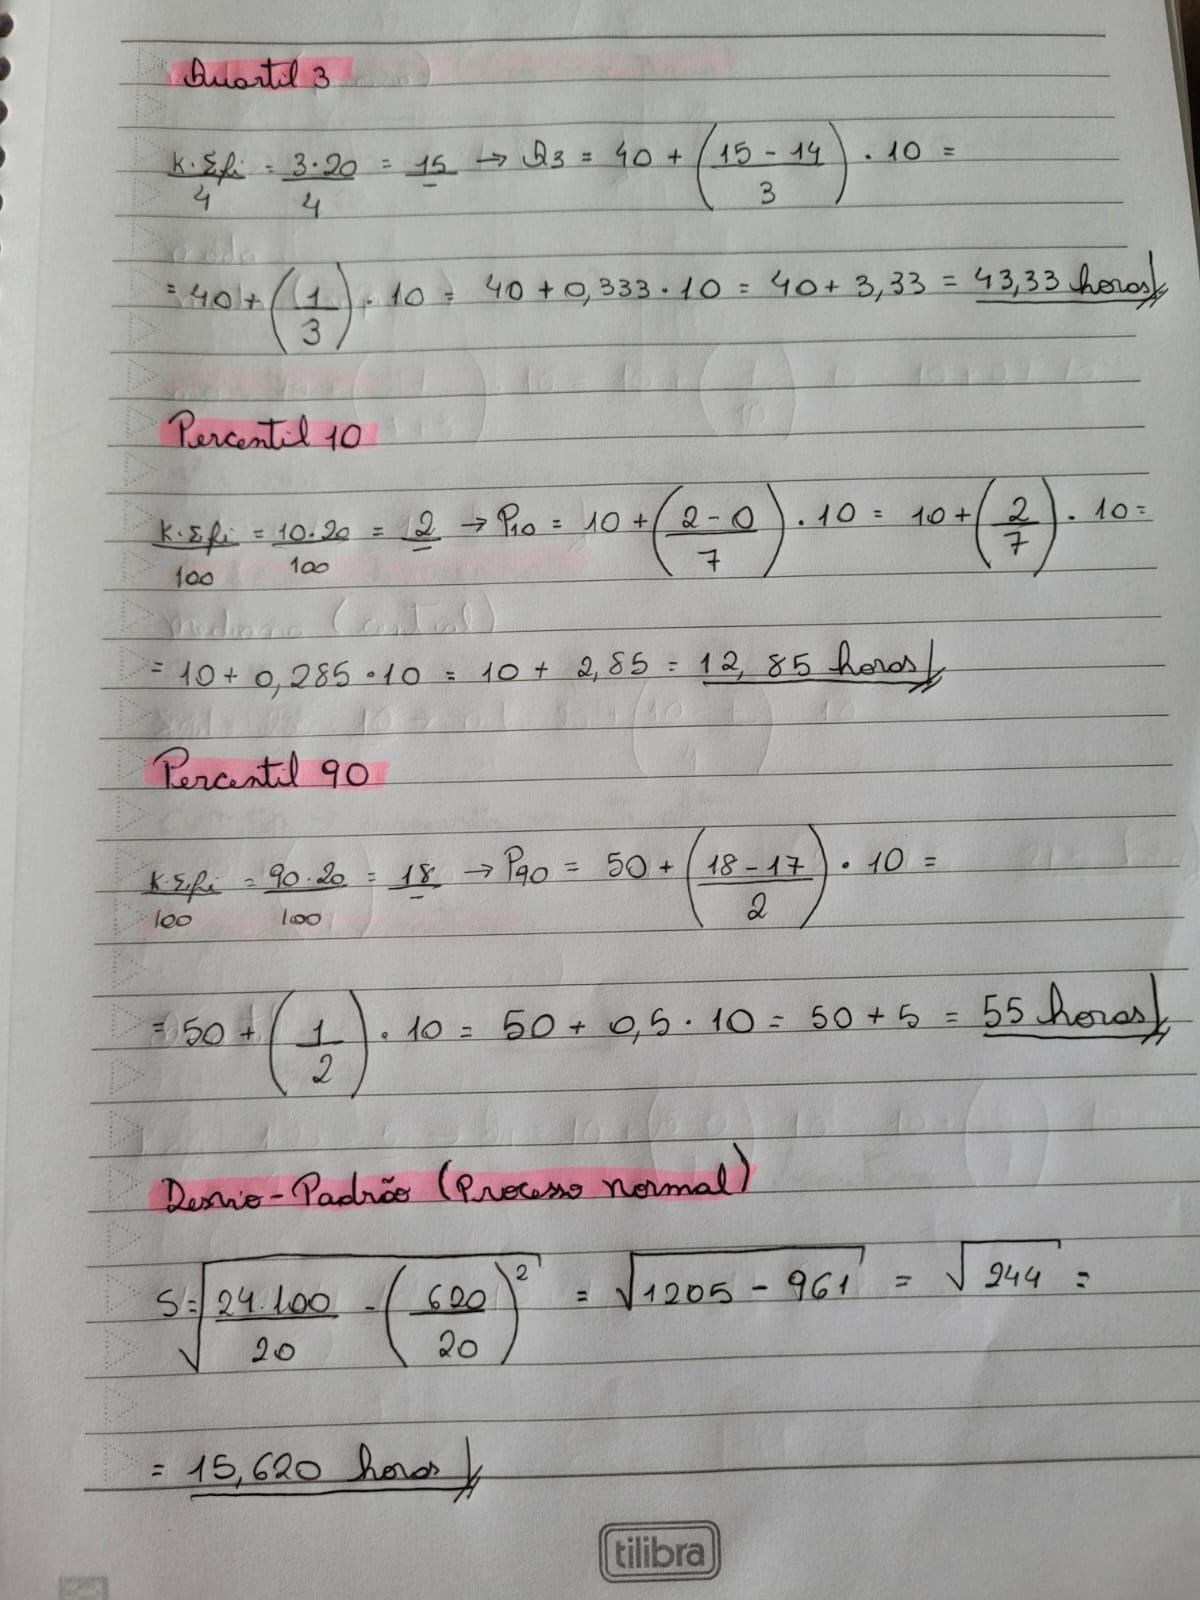 Quartil 3
K.Σfi/4 = 3.20/4 = 15 → Q3 = 40 + (15 - 14/3) . 10 =
= 40 + (1/3) . 10 = 40 + 0,333 . 10 = 40 + 3,33 = 43,33 horas
Percentil 10
K.Σfi/100 = 10.20/100 = 2 → P10 = 10 + (2 - 0/7) . 10 = 10 + (2/7) . 10 =
= 10 + 0,285 . 10 = 10 + 2,85 = 12,85 horas
Percentil 90
K.Σfi/100 = 90.20/100 = 18 → P90 = 50 + (18 - 17/2) . 10 =
= 50 + (1/2) . 10 = 50 + 0,5 . 10 = 50 + 5 = 55 horas
Desvio-Padrão (Processo normal)
S = √24.100/20 - (620/20)² = √1205 - 961 = √244 =
= 15,620 horas
tilibra